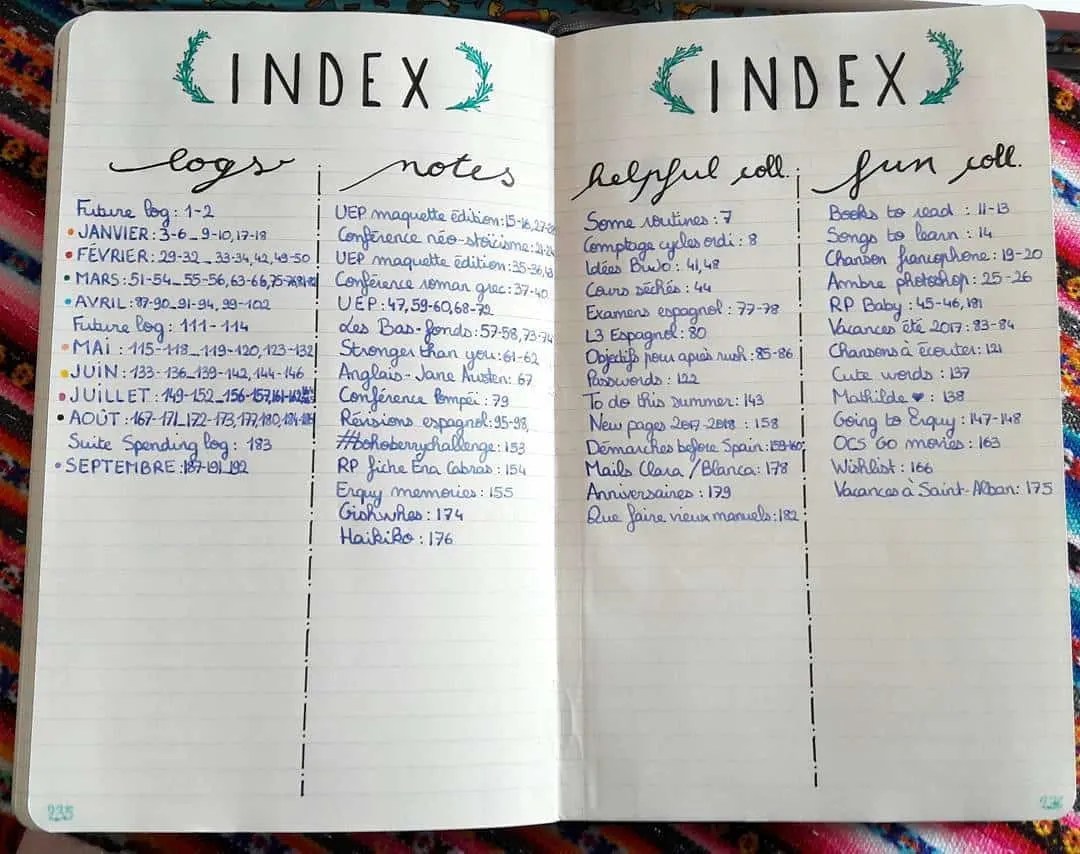 INDEX
logs
Future log : 1-2
JANVIER : 3-6_9-10, 17-18
FÉVRIER : 29-32_33-34, 42, 49-50
MARS : 51-54_55-56, 63-66,
AVRIL : 87-90_91-94, 99-102
Future log : 111-114
MAI : 115-118_119-120, 123-132
JUIN : 133-136_139-142, 144-146
JUILLET : 149-152_156-157,
AOÛT : 167-171_172-173, 177, 180,
Suite Spending log : 183
SEPTEMBRE : 187-191_192
notes
UEP maquette édition : 15-16,
Conférence néo-stoïcisme :
UEP maquette édition : 35-36,
Conférence roman grec : 37-40
UEP : 47, 59-60, 68-72
Les Bas-fonds : 57-58, 73-74
Stronger than you : 61-62
Anglais - Jane Austen : 67
Conférence Pompéi : 79
Révisions espagnol : 95-98,
#bohoberrychallenge : 153
RP fiche Ena Cabras : 154
Erquy memories : 155
Gishwhes : 174
Haikiko : 176
235
INDEX
helpful coll.
Some routines : 7
Comptage cycles ordi : 8
Idées BuJo : 41, 48
Cours séchés : 44
Examens espagnol : 77-78
L3 Espagnol : 80
Objectifs pour après rush : 85-86
Passwords : 122
To do this summer : 143
New pages 2017-2018 : 158
Démarches before Spain : 159-160
Mails Clara / Blanca : 178
Anniversaires : 179
Que faire vieux manuels : 182
fun coll.
Books to read : 11-13
Songs to learn : 14
Chanson francophone : 19-20
Ambre photoshop : 25-26
RP Baby : 45-46, 181
Vacances été 2017 : 83-84
Chansons à écouter : 121
Cute words : 137
Mathilde ♥ : 138
Going to Erquy : 147-148
OCS Go movies : 163
Wishlist : 166
Vacances à Saint-Alban : 175
236